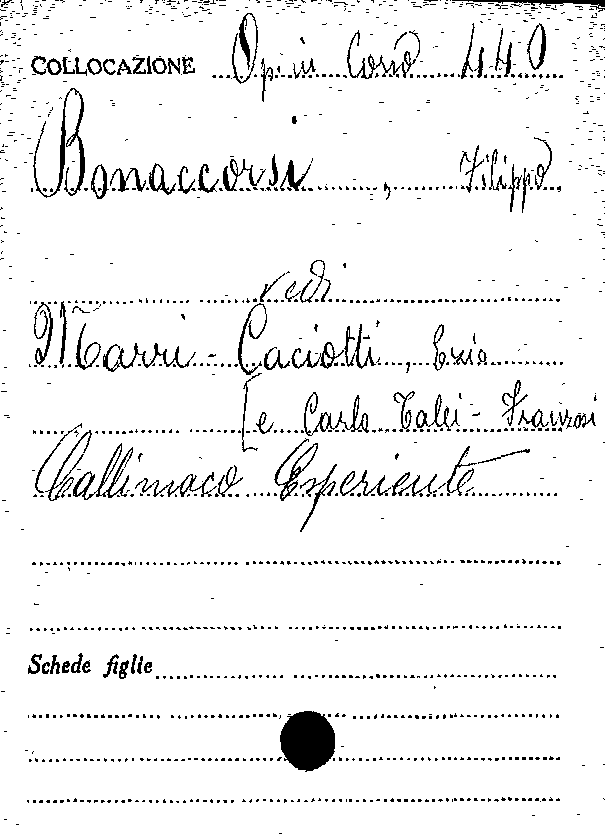 COLLOCAZIONE Op. in Corso 440
Bonaccorsi, Filippo
vedi
Marri - Caciotti, Ezio
[e Carlo Talei - Franzosi
Callimaco Esperiente
Schede figlie